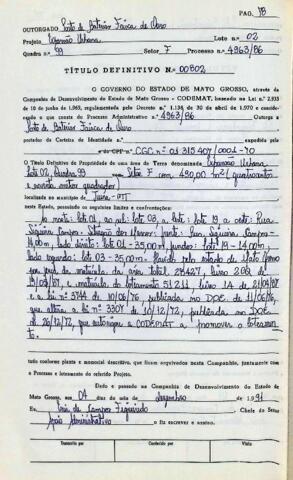 PAG. 18
OUTORGADO Posto de Gasolina Faisca de Ouro
Projeto Expansão Urbana Lote n.o 02
Quadra n.o 99 Setor F Processo n.o 4963/86
TÍTULO DEFINITIVO N.o 00802
O GOVERNO DO ESTADO DE MATO GROSSO, através da
Companhia de Desenvolvimento do Estado de Mato Grosso - CODEMAT, baseado na Lei n.o 2.935
de 10 de junho de 1969, regulamentada pelo Decreto n.o 1.138 de 30 de abril de 1970 e considerando
o que consta do Processo Administrativo n.o 4963/86 Outorga a
Faisca de Ouro
portador da Carteira de Identidade n.o
e CPF n.o CGC n.o 01 315 407/0001-70
O Título Definitivo de Propriedade de uma área de Terra denominada Expansão Urbana
Lote 02, Quadra 99 Setor F com 490,00 m2 (quatrocentos
e noventa metros quadrados)
localizado no município de
neste Estado, possuindo os seguintes limites e confrontações:
Ao norte: lote 01, ao sul: lote 03, a leste: lote 19 a oeste: Rua
Siqueira Campos - Situação dos Marcos: frente: Rua Siqueira Campos -
14,00m, lado direito: lote 01 - 35,00m, fundos: lote 19 - 14,00m,
lado esquerdo: lote 03 - 35,00m. Havido pelo estado de Mato Grosso
matrícula da área total 27427, livro 2
e matrícula do loteamento 51.211, livro 14 de 21/04/87
e a lei n.o 3744 de 10/06/76, publicada no DOE de 11/06/76,
que altera a lei n.o 3307 de 10/12/72, publicada no DOE
de 26/12/72 que autoriza a CODEMAT a promover o loteamen-
to.
tudo conforme planta e memorial descritivo, que ficam arquivados nesta Companhia, juntamente com
o Processo e loteamento do referido Projeto.
Dado e passado na Companhia de Desenvolvimento do Estado de
Mato Grosso, aos 04 dias do mês de dezembro de 1991
de Campos Figueiredo Chefe do Setor
Apoio Administrativo o fiz escrever e assino.
Transcrito por Conferido por Visto